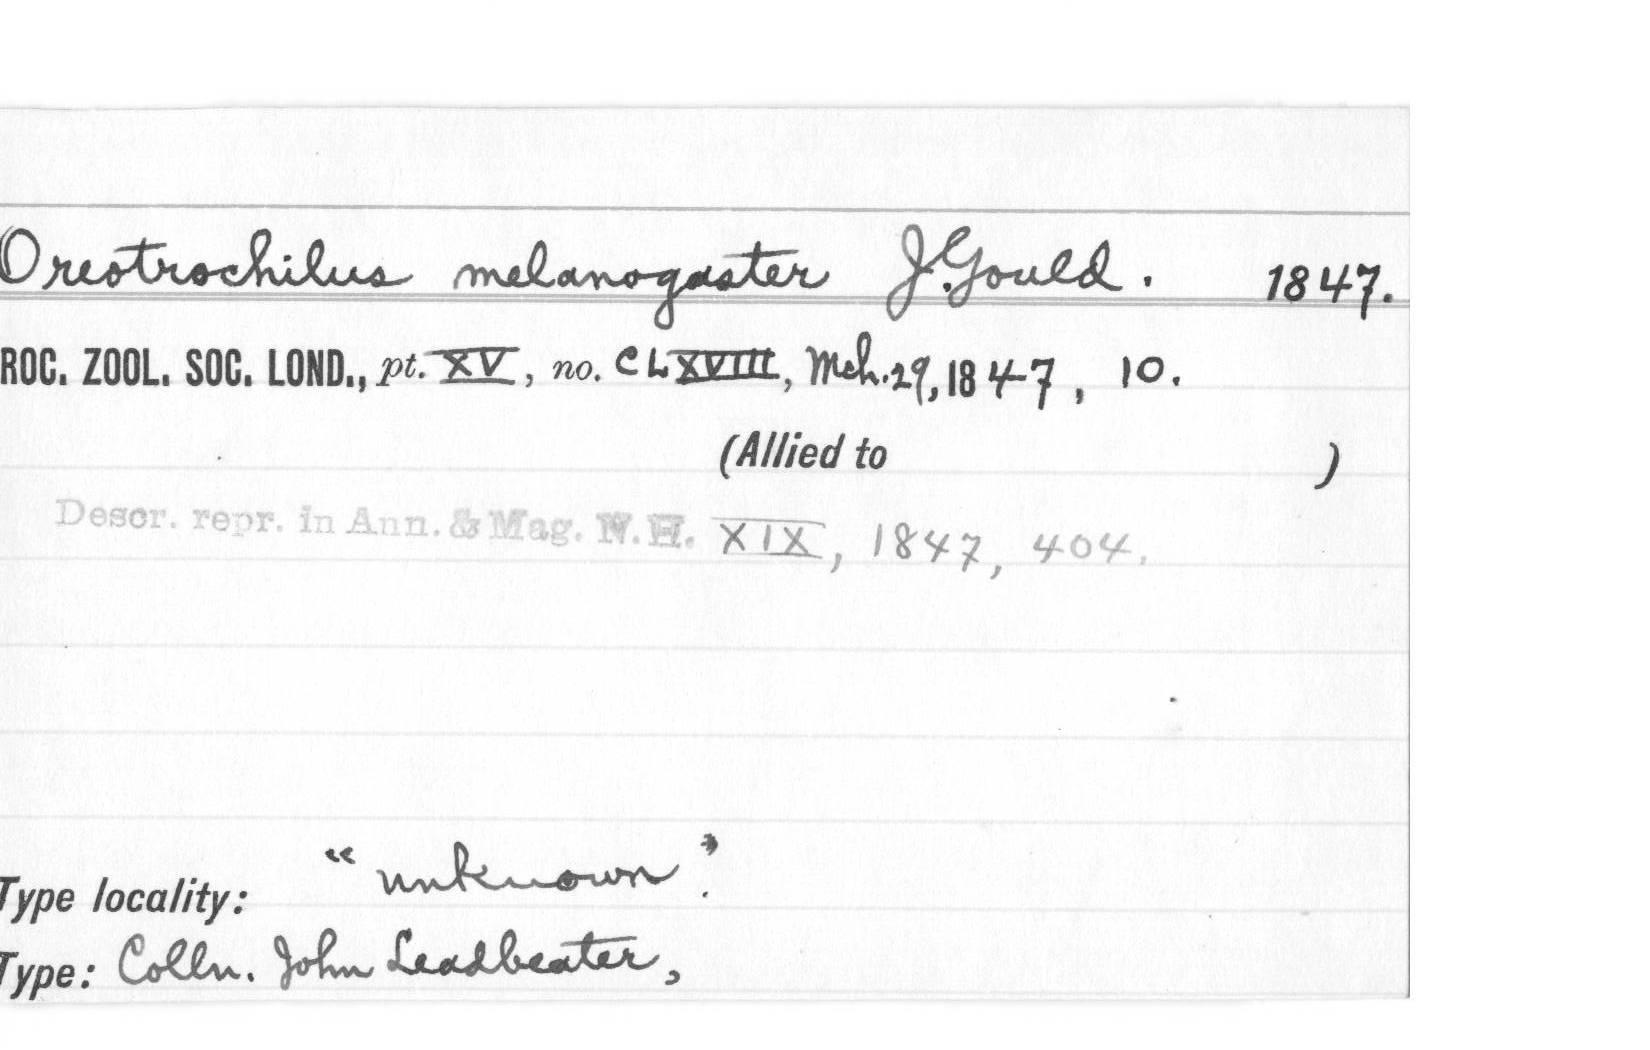 Oreotrochilus melanogaster J. Gould. 1847.
ROC. ZOOL. SOC. LOND., pt. XV, no. CLXVIII, Mch. 29, 1847, 10.
(Allied to )
Descr. repr. in Ann. & Mag. N.H. XIX, 1847, 404.
Type locality: "unknown".
Type: Colln. John Leadbeater,